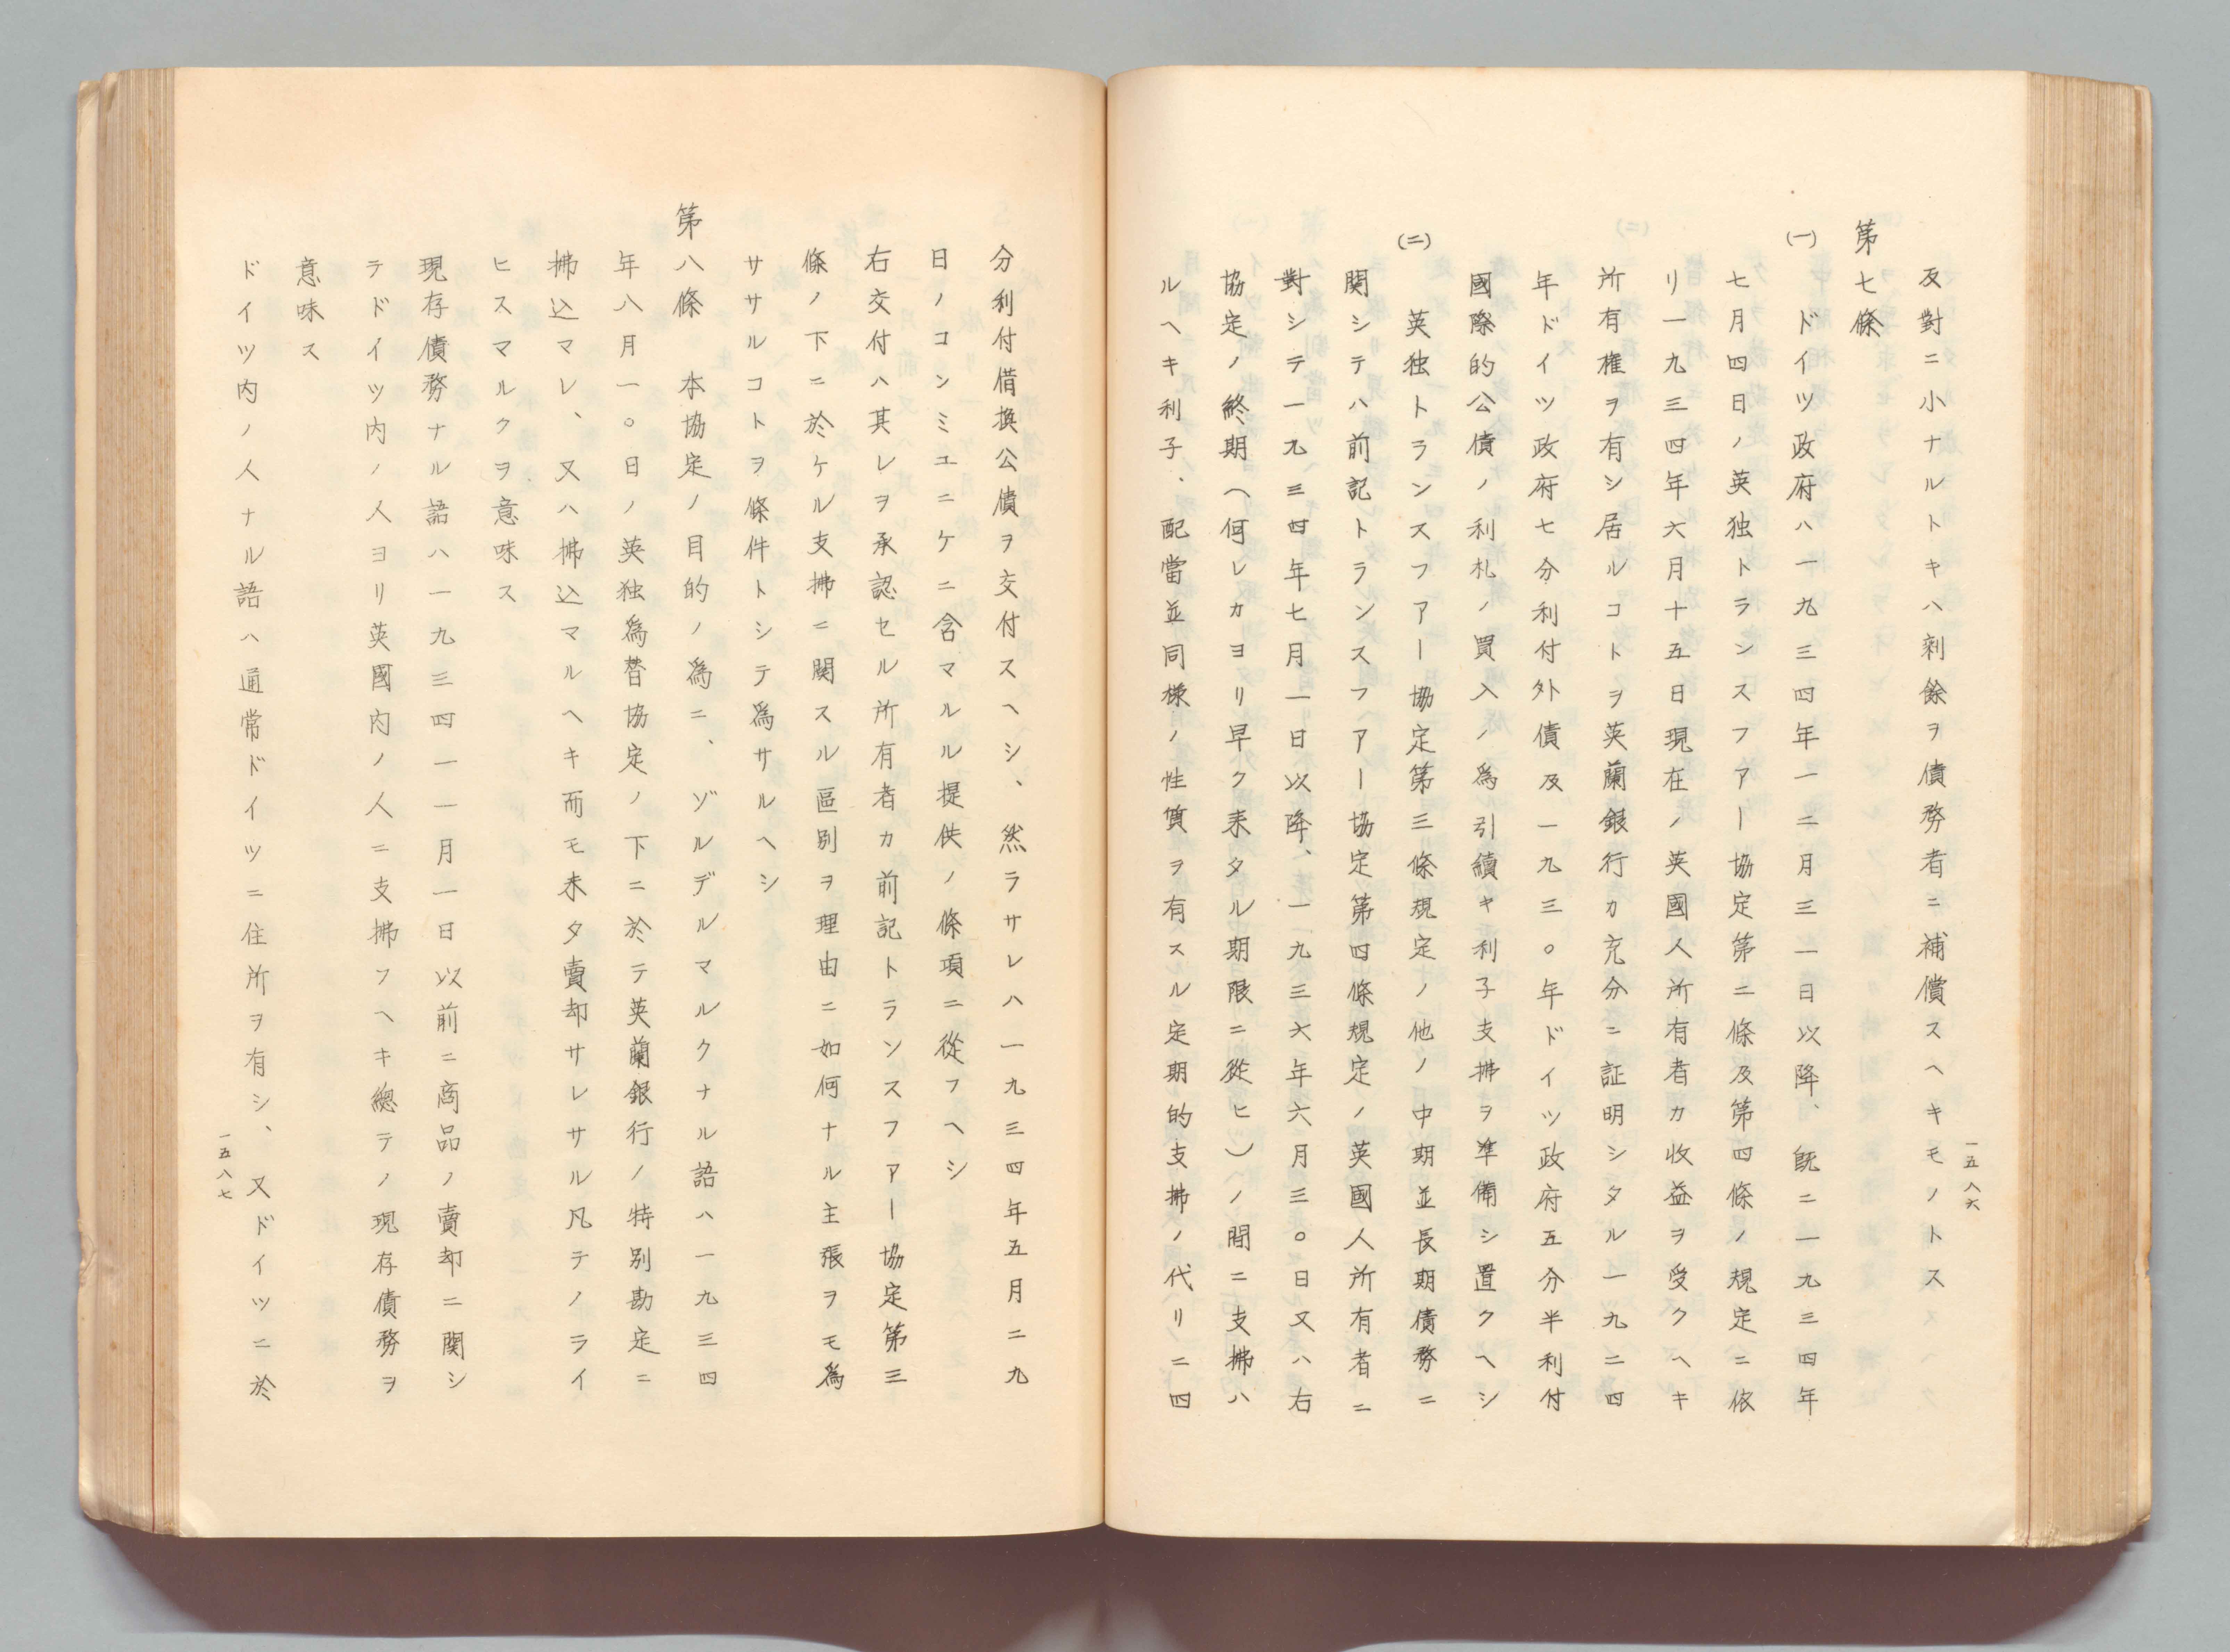 反對ニ小ナルトキハ剰餘ヲ債務者ニ補償スヘキモノトス
第七條
(一) ドイツ政府ハ一九三四年一二月三一日以降、既ニ一九三四年
七月四日ノ英独トランスフアー協定第二條及第四條ノ規定ニ依
リ一九三四年六月十五日現在ノ英國人所有者カ收益ヲ受クヘキ
所有権ヲ有シ居ルコトヲ英蘭銀行カ充分ニ証明シタル一九二四
年ドイツ政府七分利付外債及一九三〇年ドイツ政府五分半利付
國際的公債ノ利札ノ買入ノ爲引續キ利子支拂ヲ準備シ置クヘシ
(二) 英独トランスフアー協定第三條規定ノ他ノ中期並長期債務ニ
関シテハ前記トランスフアー協定第四條規定ノ英國人所有者ニ
對シテ一九三四年七月一日以降、一九三六年六月三〇日又ハ右
協定ノ終期(何レカヨリ早ク来タル期限ニ從ヒ)ヘノ間ニ支拂ハ
ルヘキ利子、配當並同様ノ性質ヲ有スル定期的支拂ノ代リニ四
一五八六
分利付借換公債ヲ交付スヘシ、然ラサレハ一九三四年五月二九
日ノコンミユニケニ含マルル提供ノ條項ニ從フヘシ
右交付ハ其レヲ承認セル所有者カ前記トランスフアー協定第三
條ノ下ニ於ケル支拂ニ関スル區別ヲ理由ニ如何ナル主張ヲモ爲
ササルコトヲ條件トシテ爲サルヘシ
第八條 本協定ノ目的ノ爲ニ、ゾルデルマルクナル語ハ一九三四
年八月一〇日ノ英独爲替協定ノ下ニ於テ英蘭銀行ノ特別勘定ニ
拂込マレ、又ハ拂込マルヘキ而モ未タ賣却サレサル凡テノライ
ヒスマルクヲ意味ス
現存債務ナル語ハ一九三四一一月一日以前ニ商品ノ賣却ニ関シ
テドイツ内ノ人ヨリ英國内ノ人ニ支拂フヘキ總テノ現存債務ヲ
意味ス
ドイツ内ノ人ナル語ハ通常ドイツニ住所ヲ有シ、又ドイツニ於
一五八七